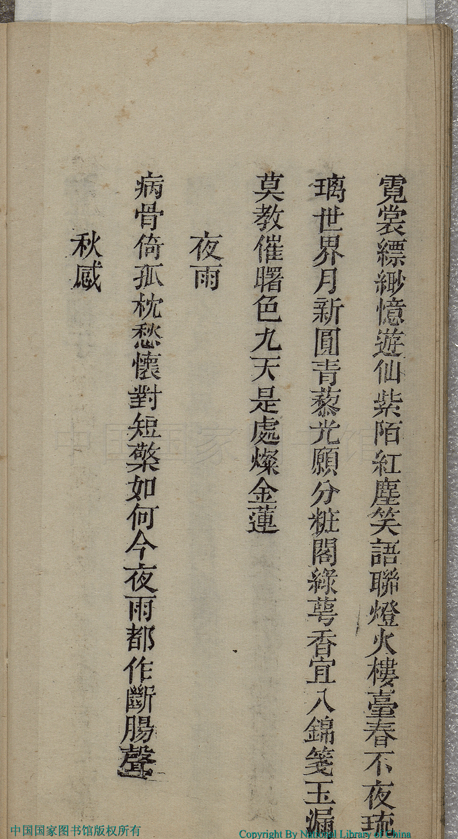 霓裳縹緲憶遊仙紫陌紅塵笑語聯燈火樓臺春不夜琉
璃世界月新圓青藜光願分粧閣綠萼香宜入錦箋玉漏
莫教催曙色九天是處燦金蓮
夜雨
病骨倚孤枕愁懷對短檠如何今夜雨都作斷腸聲
秋感
中国国家图书馆版权所有
Copyright By National Library of China